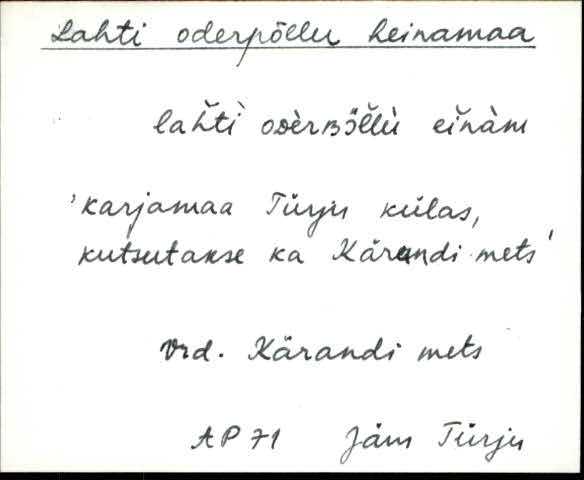 Lahti oderpõllu heinamaa
lah̆ti̇̀ oᴅèrʙɜ̈l̆lù eĭnàm
'karjamaa Türju külas,
kutsutakse ka Kärandi mets'
Vrd. Kärandi mets
AP 71 Jäm Türju